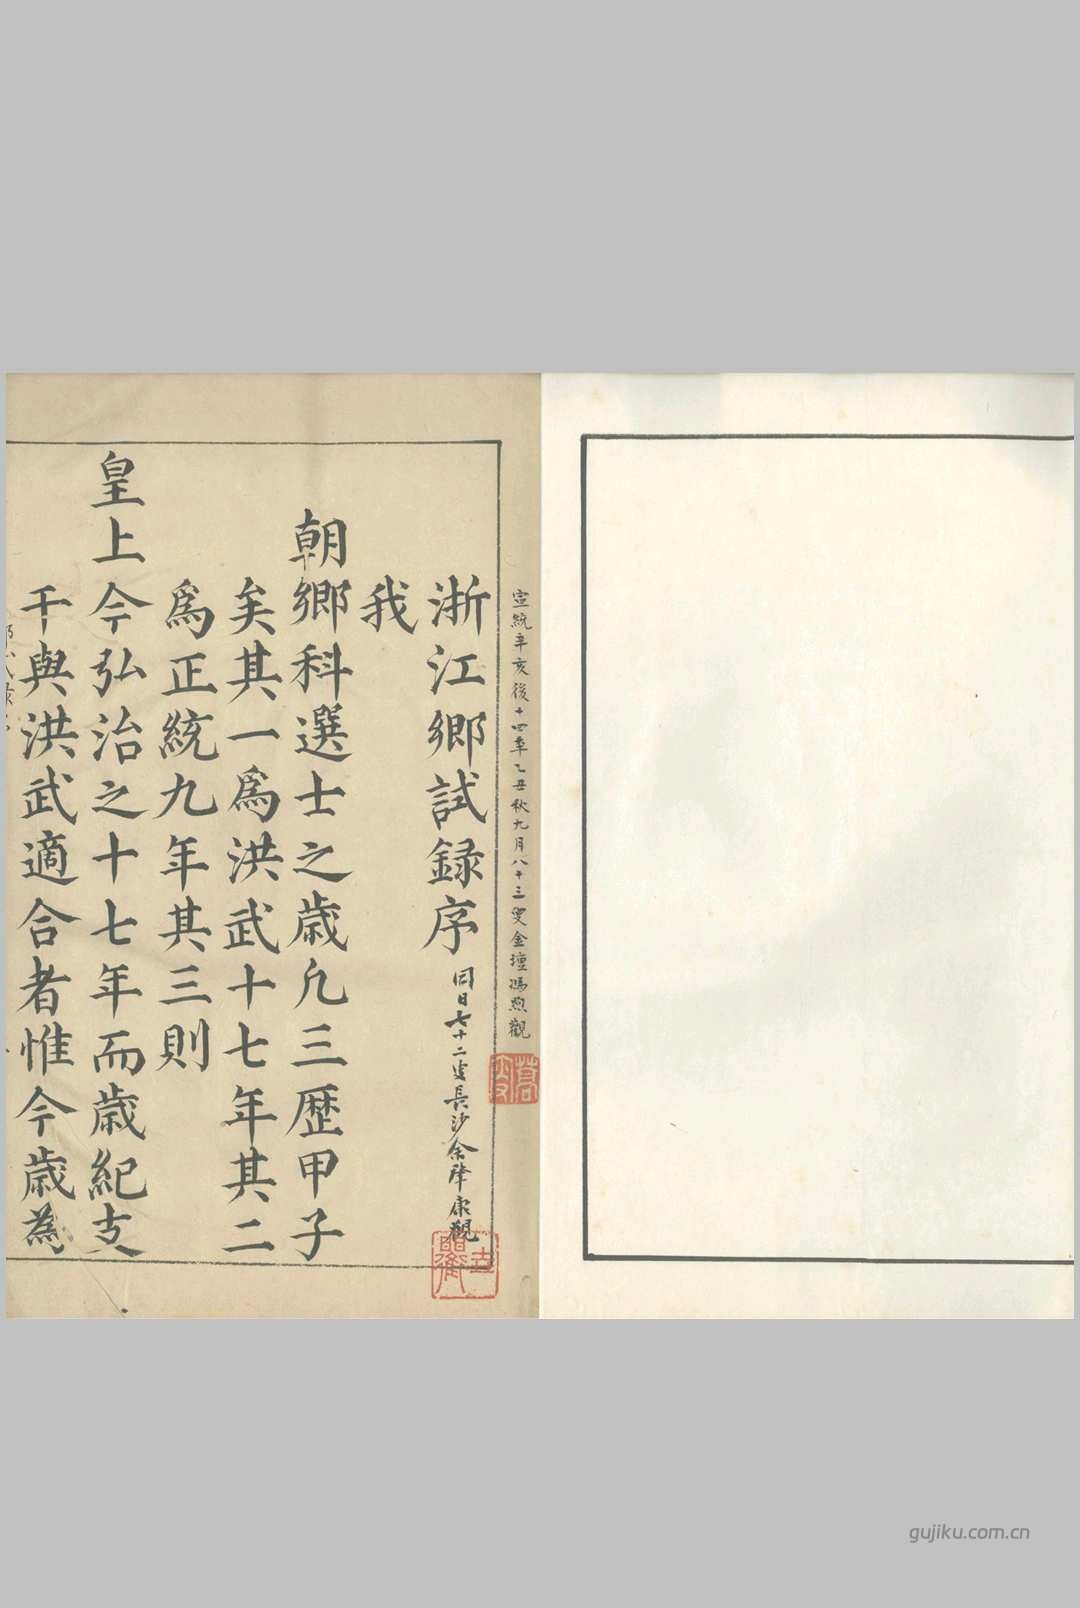 宣統辛亥後十四年乙丑秋九月八十三叟金壇馮煦觀
浙江鄉試錄序
同日七十二叟長沙余肇康觀
我
朝鄉科選士之歲凡三歷甲子
矣其一爲洪武十七年其二
爲正統九年其三則
皇上今弘治之十七年而歲紀支
干與洪武適合者惟今歲為
gujiku.com.cn